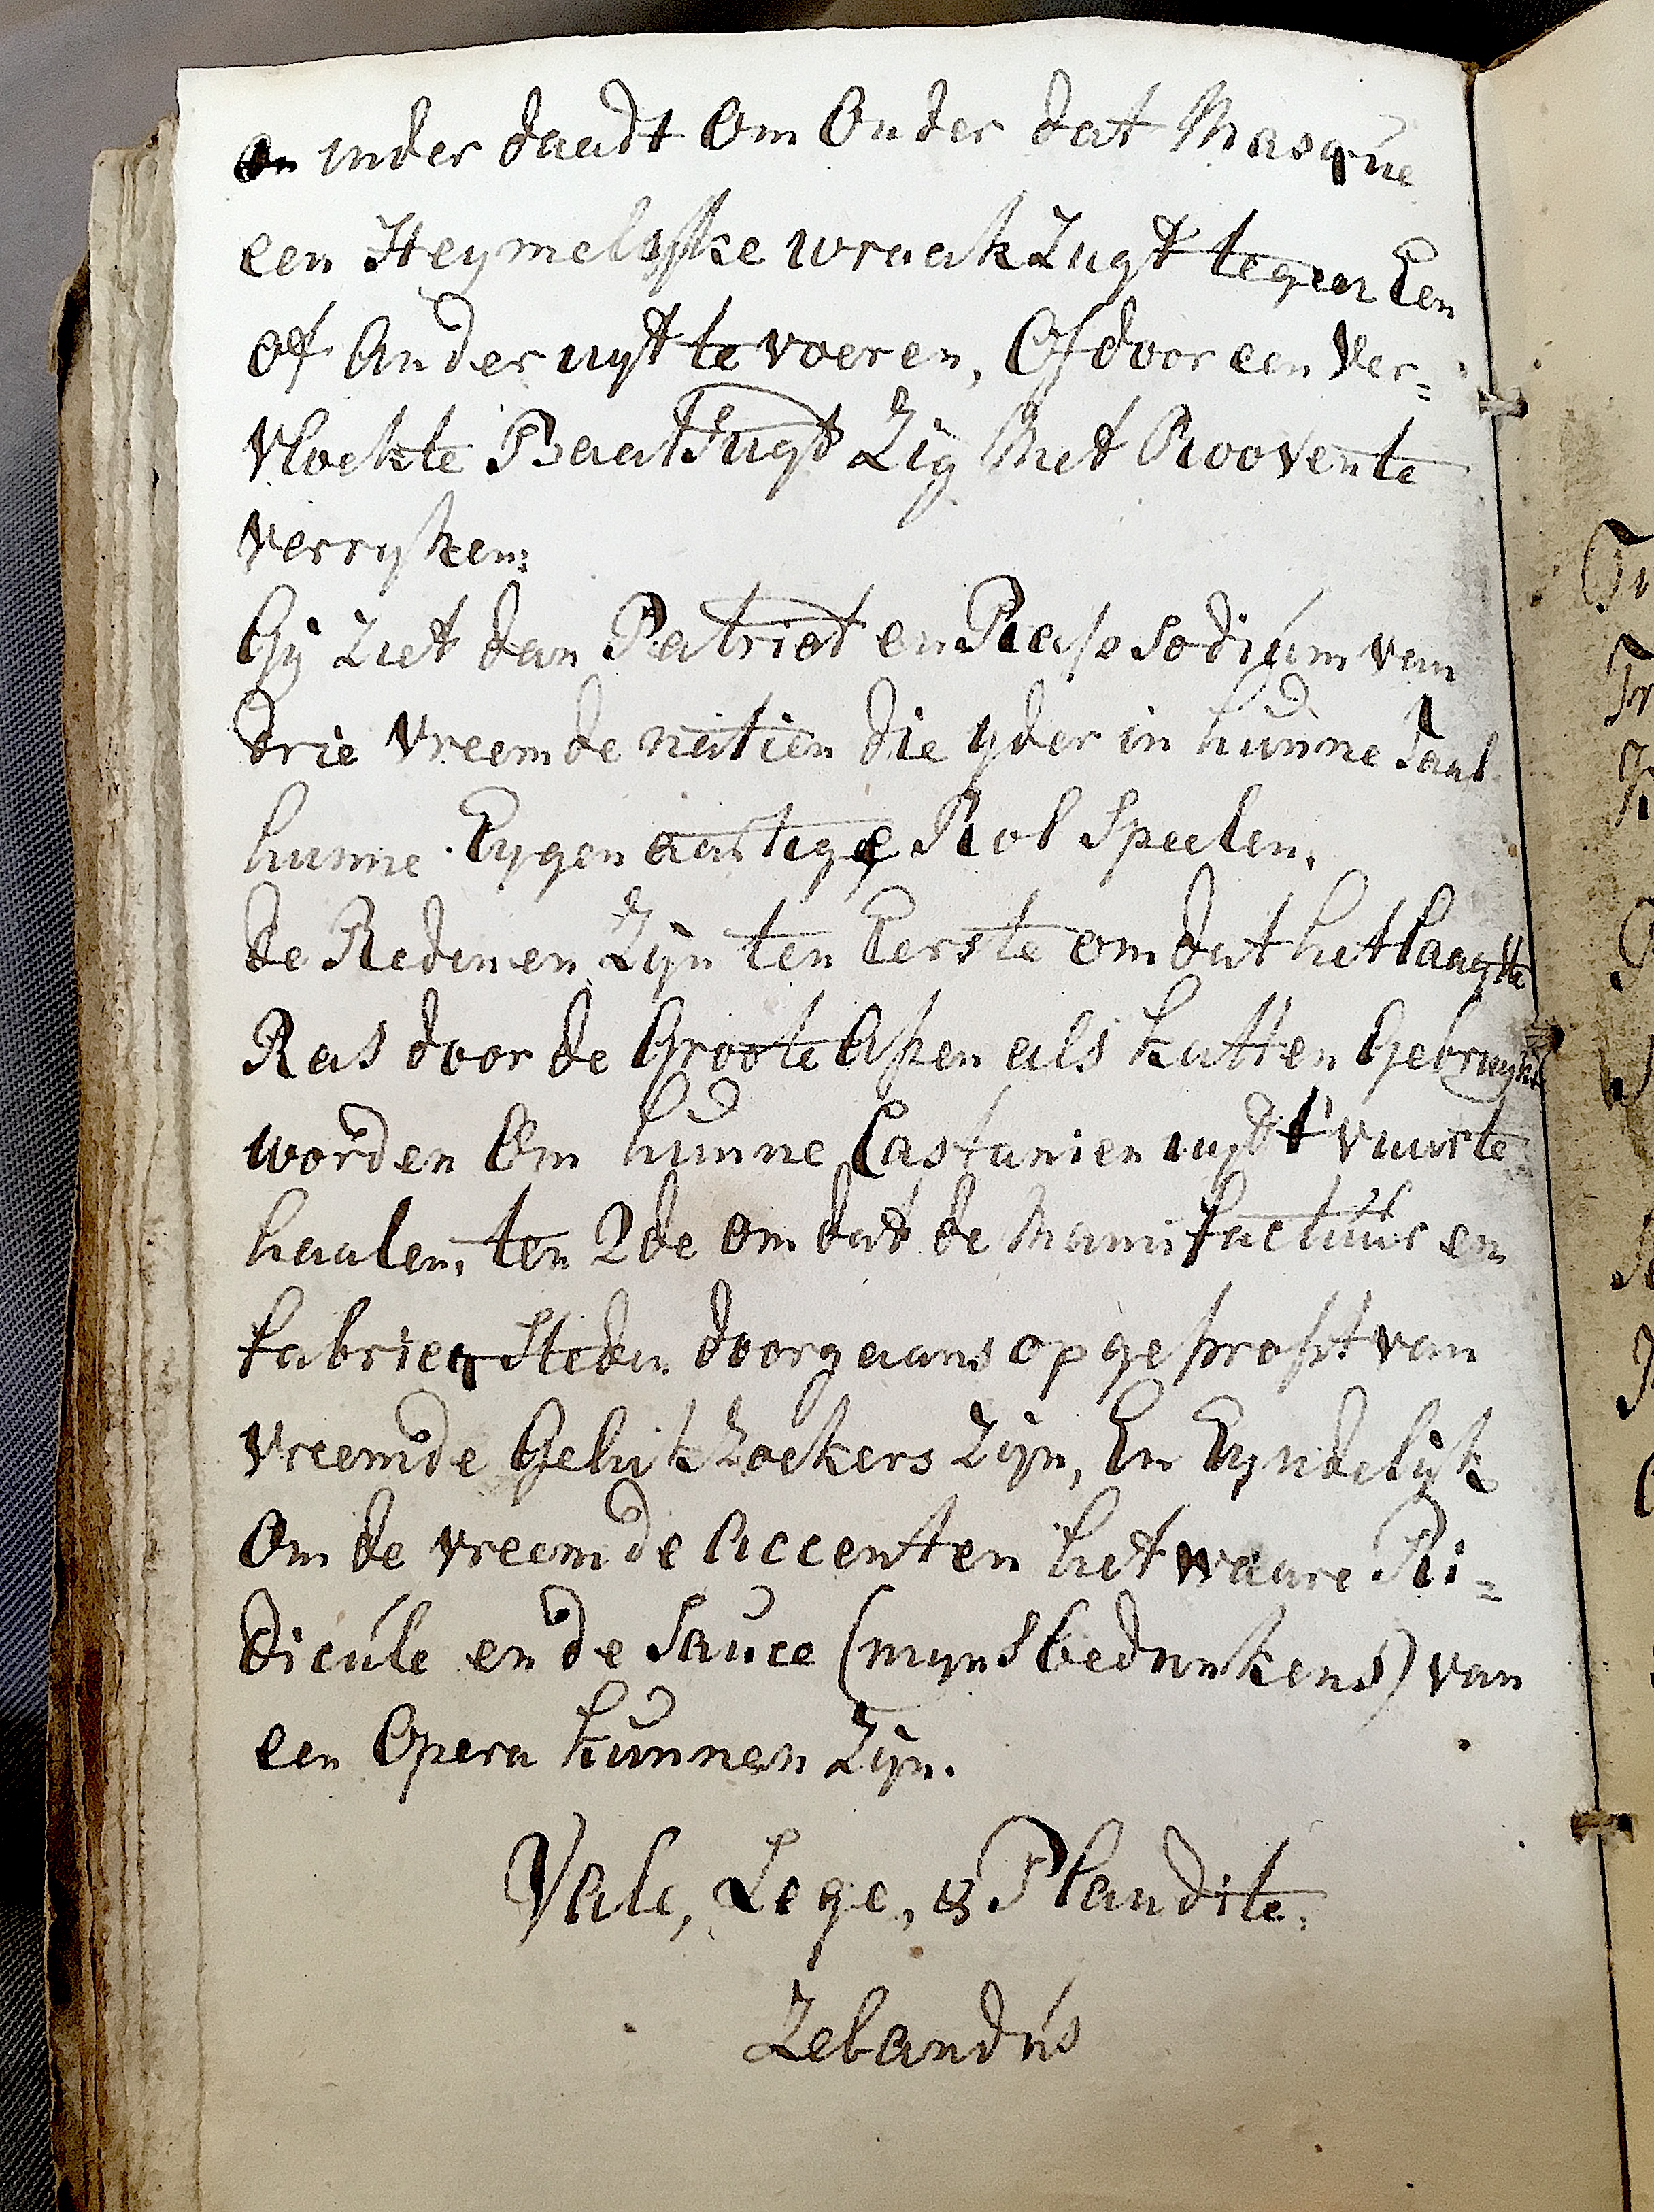 en inder daadt Om Onder dat Masque
een Heymelyke wraak Zugt tegen Een
of Ander uyt te voeren, Of door een Ver=
vloekte Baat Zugt Zig Met Rooven te
verryken:
Gÿ Ziet dan Patriot en Rapsodium van
drie Vreemde natien die yder in hunne Taal
hunne Eygen aartige Rol Speelen.
de Redenen Zÿn ten Eerste om dat het laagste
Ras door de Groote Apen als katten Gebruykt
worden Om hunne Castanien uyt 't vuur te
haalen, ten 2de om dat de Manufactuur en
fabrieq Steden doorgaans opgepropt van
vreemde Geluk Zoekers Zÿn, En Eyndelÿk
Om de vreemde Accenten het waare Ri=
dicule en de Sauce (myns bedunkens) van
een Opera kunnen Zÿn.
Vale, Lege, & Plaudite.
Zelandus